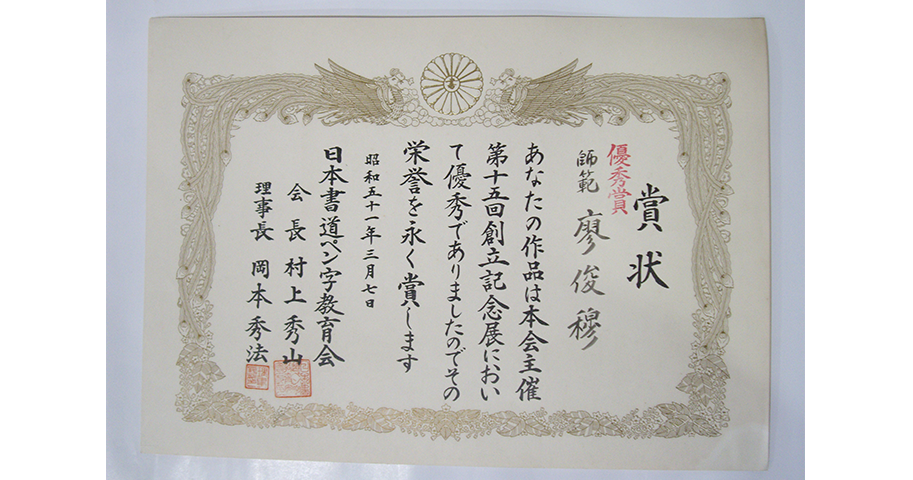 賞状
優秀賞
師範 廖俊穆
あなたの作品は本会主催
第十五回創立記念展におい
て優秀でありましたのでその
栄誉を永く賞します
昭和五十一年三月七日
日本書道ペン字教育会
会長 村上秀山
理事長 岡本秀法